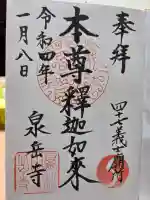 奉拝
四十七義士
本尊釋迦如來
令和四年
一月八日
泉岳寺